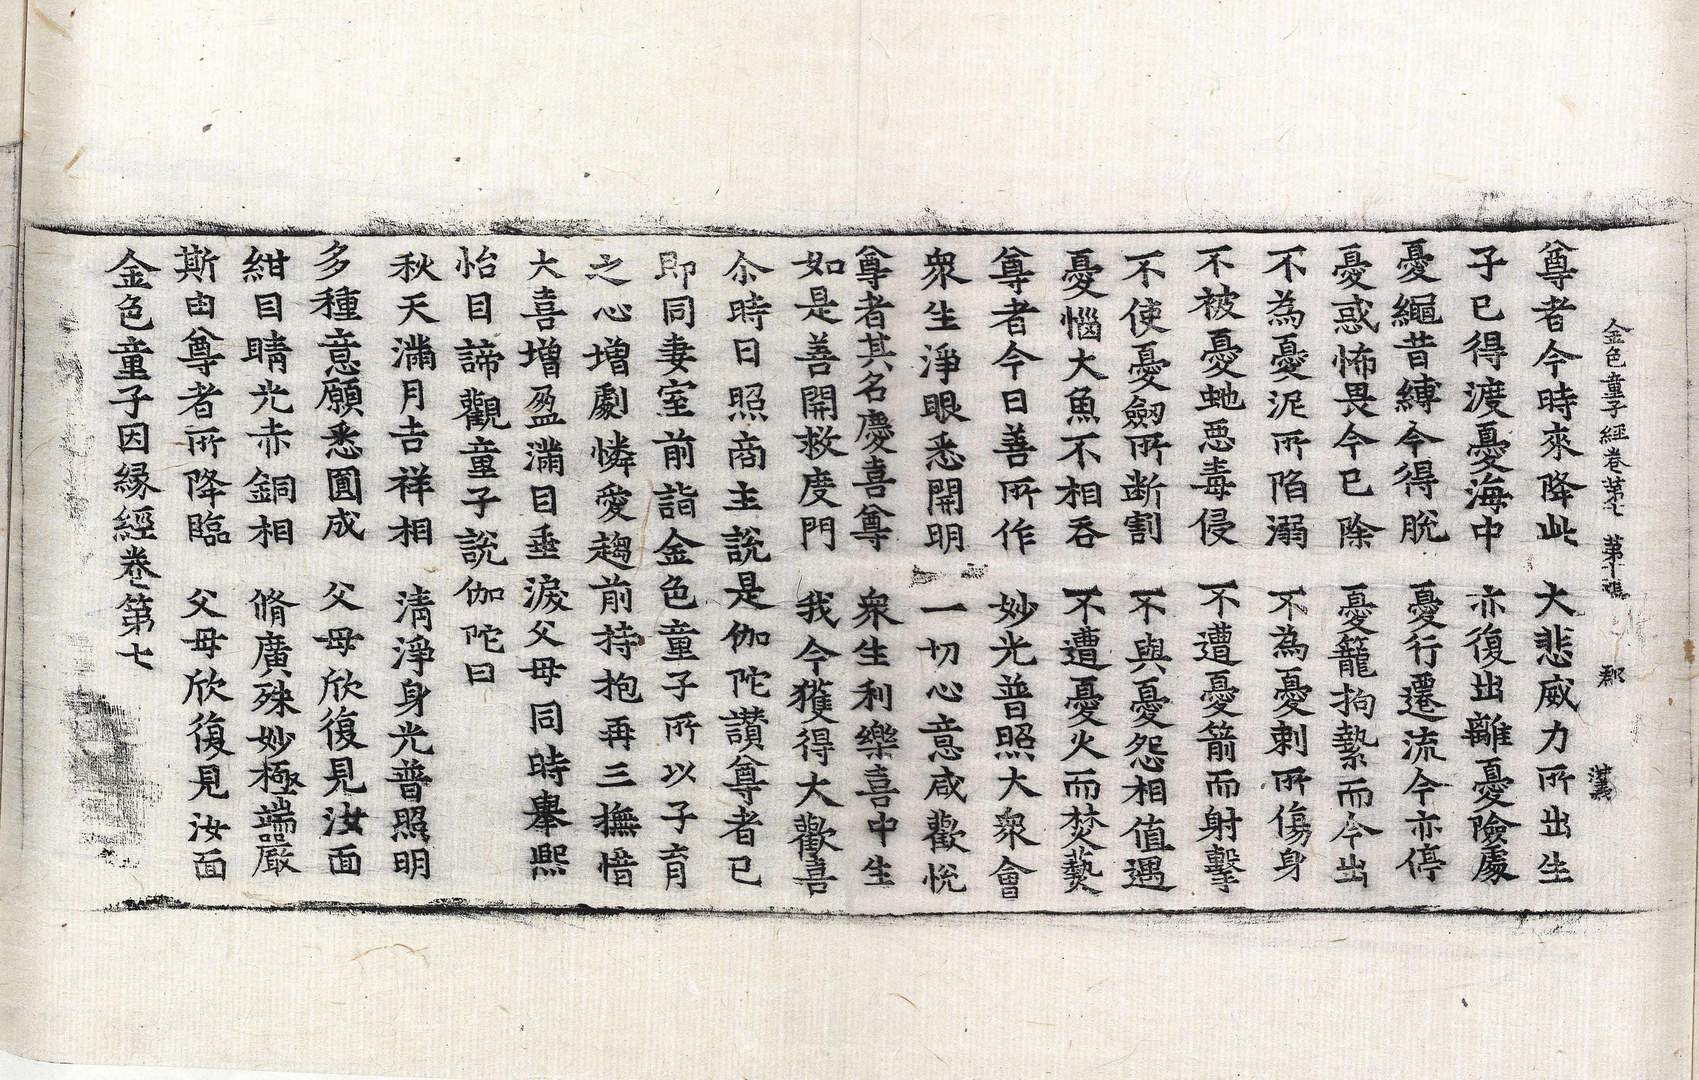 金色童子經卷第七 第十 張 郡
尊者今時來降此 大悲威力所出生
子已得渡憂海中 亦復出離憂險處
憂繩昔縛今得脫 憂行遷流今亦停
憂惑怖畏今已除 憂籠拘縶而今出
不為憂泥所陷溺 不為憂刺所傷身
不被憂虵惡毒侵 不遭憂箭而射擊
不使憂劒所斷割 不與憂怨相值遇
憂惱大魚不相吞 不遭憂火而焚爇
尊者今日善所作 妙光普照大衆會
衆生淨眼悉開明 一切心意咸歡悅
尊者其名慶喜尊 衆生利樂喜中生
如是善開救度門 我今獲得大歡喜
尒時日照商主說是伽陀讚尊者已
即同妻室前詣金色童子所以子育
之心增劇憐愛趨前持抱再三撫惜
大喜增盈滿目垂淚父母同時舉熙
怡目諦觀童子說伽陀曰
秋天滿月吉祥相 清淨身光普照明
多種意願悉圓成 父母欣復見汝面
紺目睛光赤銅相 脩廣殊妙極端嚴
斯由尊者所降臨 父母欣復見汝面
金色童子因緣經卷第七